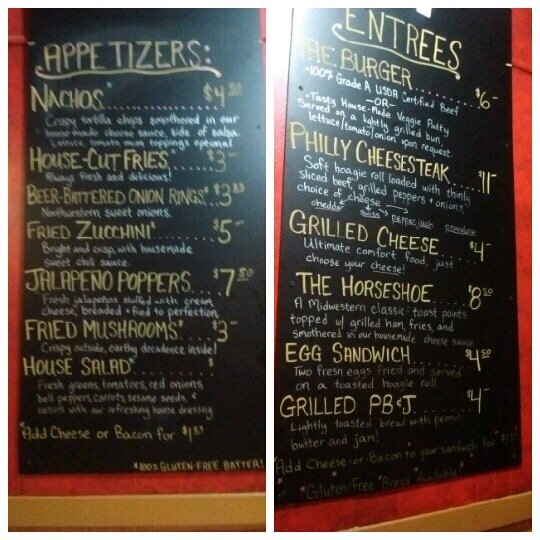 APPETIZERS:
NACHOS..............$4.50
Crispy tortilla chips smothered in our
house-made cheese sauce, side of salsa.
Lettuce, tomato, onion toppings optional
HOUSE-CUT FRIES....$3-
Always fresh and delicious!
BEER-BATTERED ONION RINGS*..$3
Northwestern sweet onions.
FRIED ZUCCHINI*......$5-
Bright and crisp with housemade
sweet chili sauce.
JALAPENO POPPERS....$7.50
Fresh jalapenos stuffed with cream
cheese, breaded + fried to perfection.
FRIED MUSHROOMS*....$3-
Crispy outside, earthy decadence inside!
HOUSE SALAD..........$
Fresh greens, tomatoes, red onions,
bell peppers, carrots, sesame seeds, +
raisins with our refreshing house dressing
*Add Cheese or Bacon for $1
*100% GLUTEN-FREE BATTER!
ENTREES
THE BURGER..........$6-
-100% Grade A USDA Certified Beef
-OR-
-Tasty House-Made Veggie Patty
Served on a lightly grilled bun,
lettuce/tomato/onion upon request.
PHILLY CHEESESTEAK...$11-
Soft hoagie roll loaded with thinly
sliced beef, grilled peppers + onions,
choice of cheese
cheddar swiss pepperjack provolone
GRILLED CHEESE......$4-
Ultimate comfort food, just
choose your cheese!
THE HORSESHOE......$8.50
A Midwestern classic: toast points
topped w/ grilled ham, fries, and
smothered in our housemade cheese sauce
EGG SANDWICH.......$4.50
Two fresh eggs fried and served
on a toasted hoagie roll
GRILLED PB&J.......$4-
Lightly toasted bread with peanut
butter and jam!
*Add Cheese or Bacon to your sandwich for $1
*Gluten-Free Bread Available!*